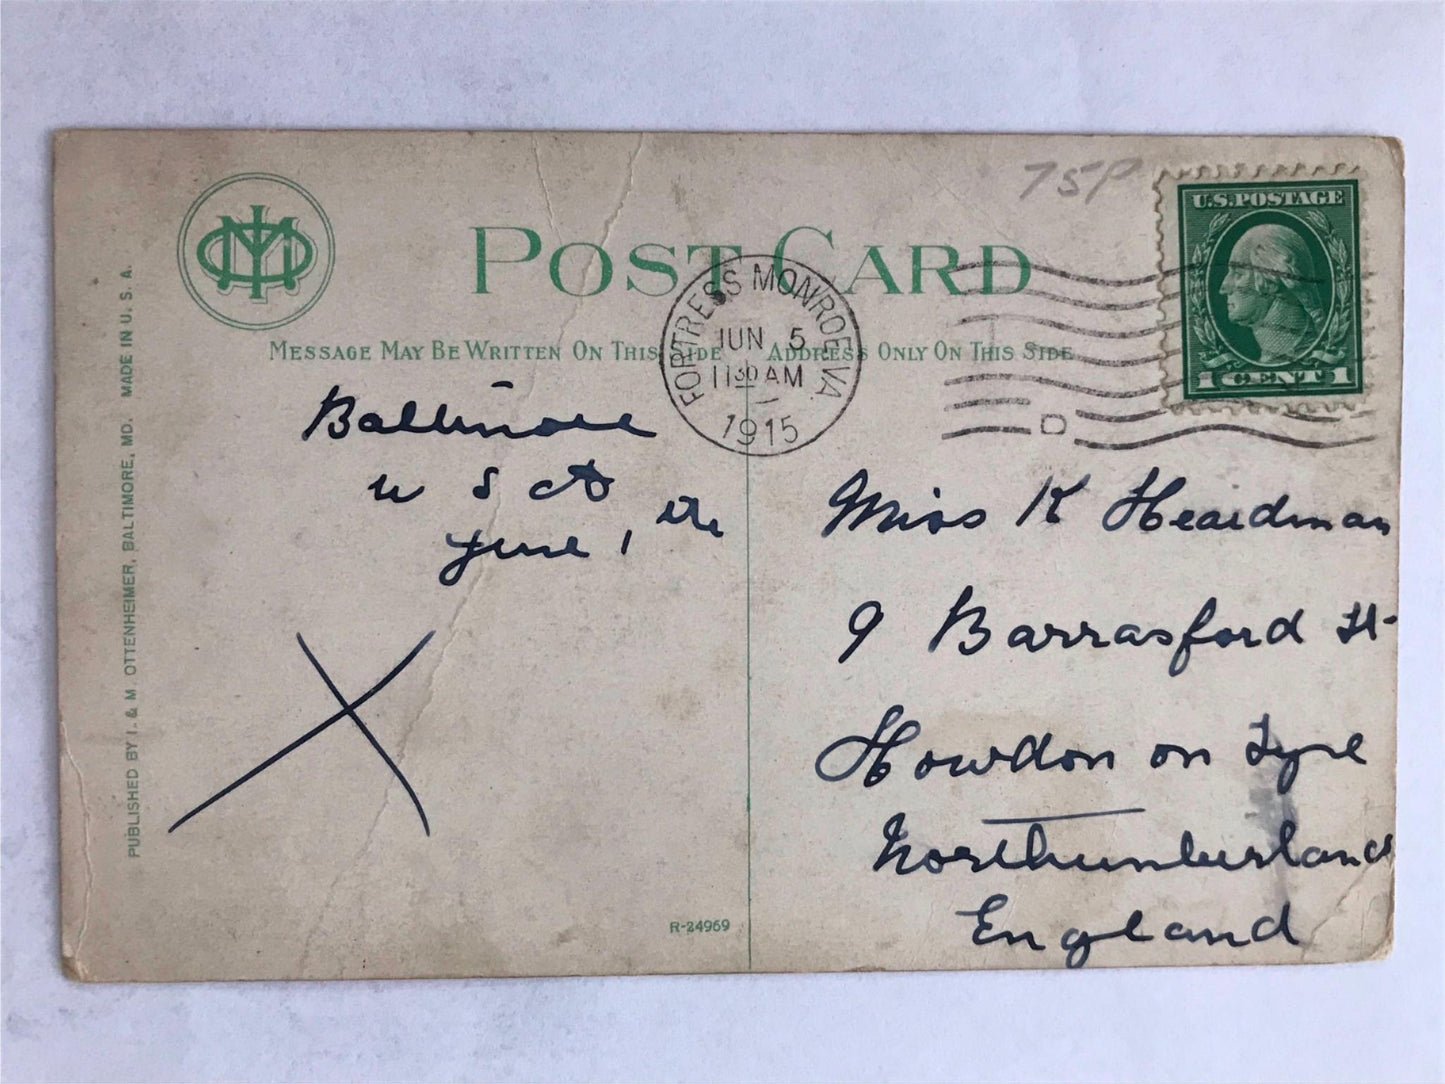 75P
U.S. POSTAGE
1 CENT 1
POST CARD
FORTRESS MONROE, VA.
JUN 5
11 30 AM
1915
D
MESSAGE MAY BE WRITTEN ON THIS SIDE
ADDRESS ONLY ON THIS SIDE
Baltimore
U S
June 1
Miss K Heardman
9 Barrasford St-
Howdon on Tyne
Northumberland
England
R-24969
PUBLISHED BY I. & M. OTTENHEIMER, BALTIMORE, MD. MADE IN U. S. A.